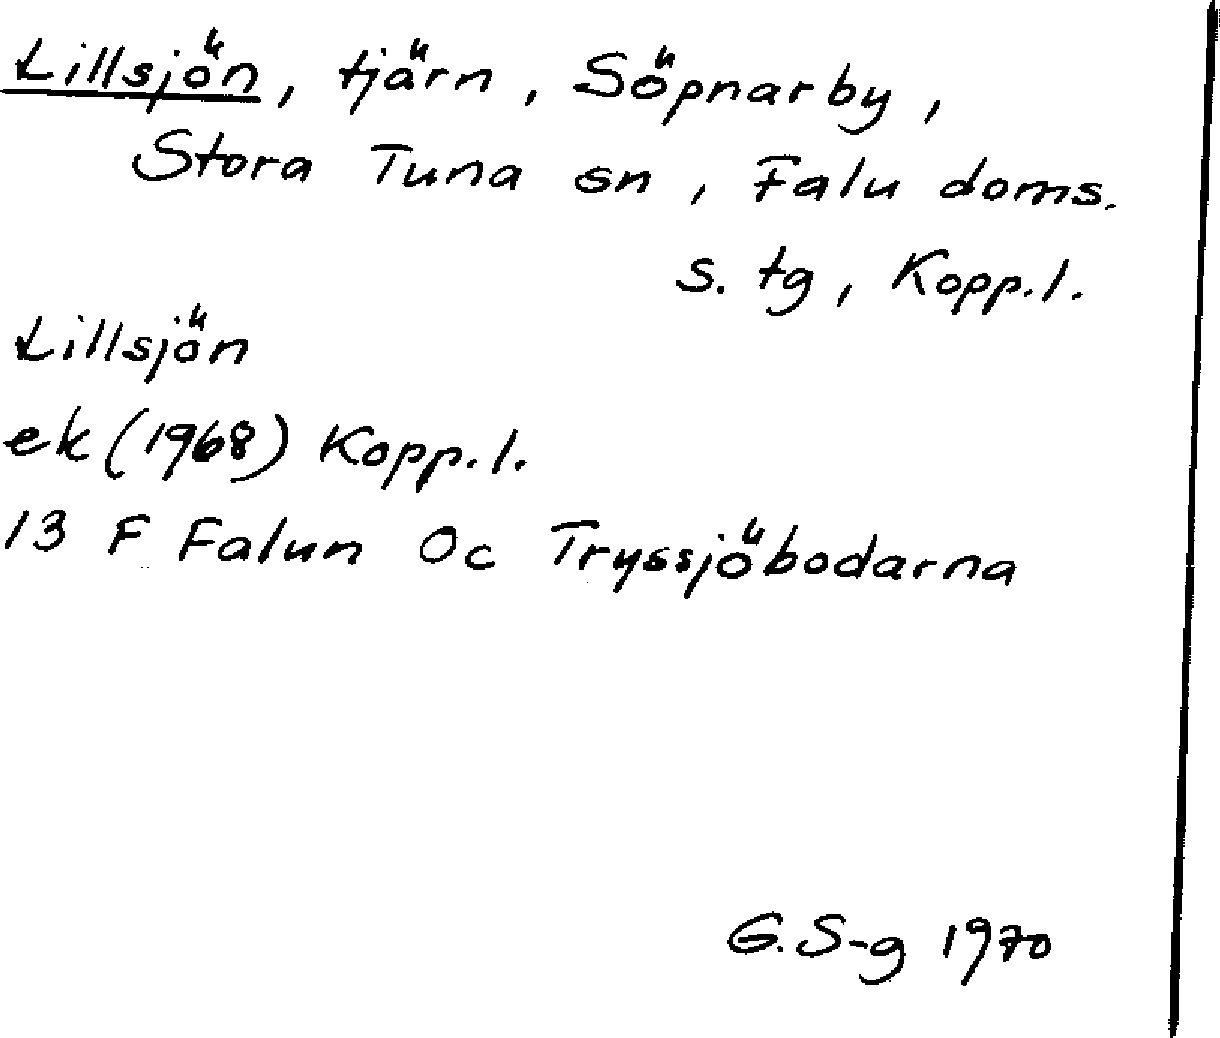 Lillsjön, tjärn, Söpnarby,
Stora Tuna sn, Falu doms.
s. tg, Kopp.l.
Lillsjön
ek (1968) Kopp.l.
13 F Falun 0c Tryssjöbodarna
G.S-g 1970